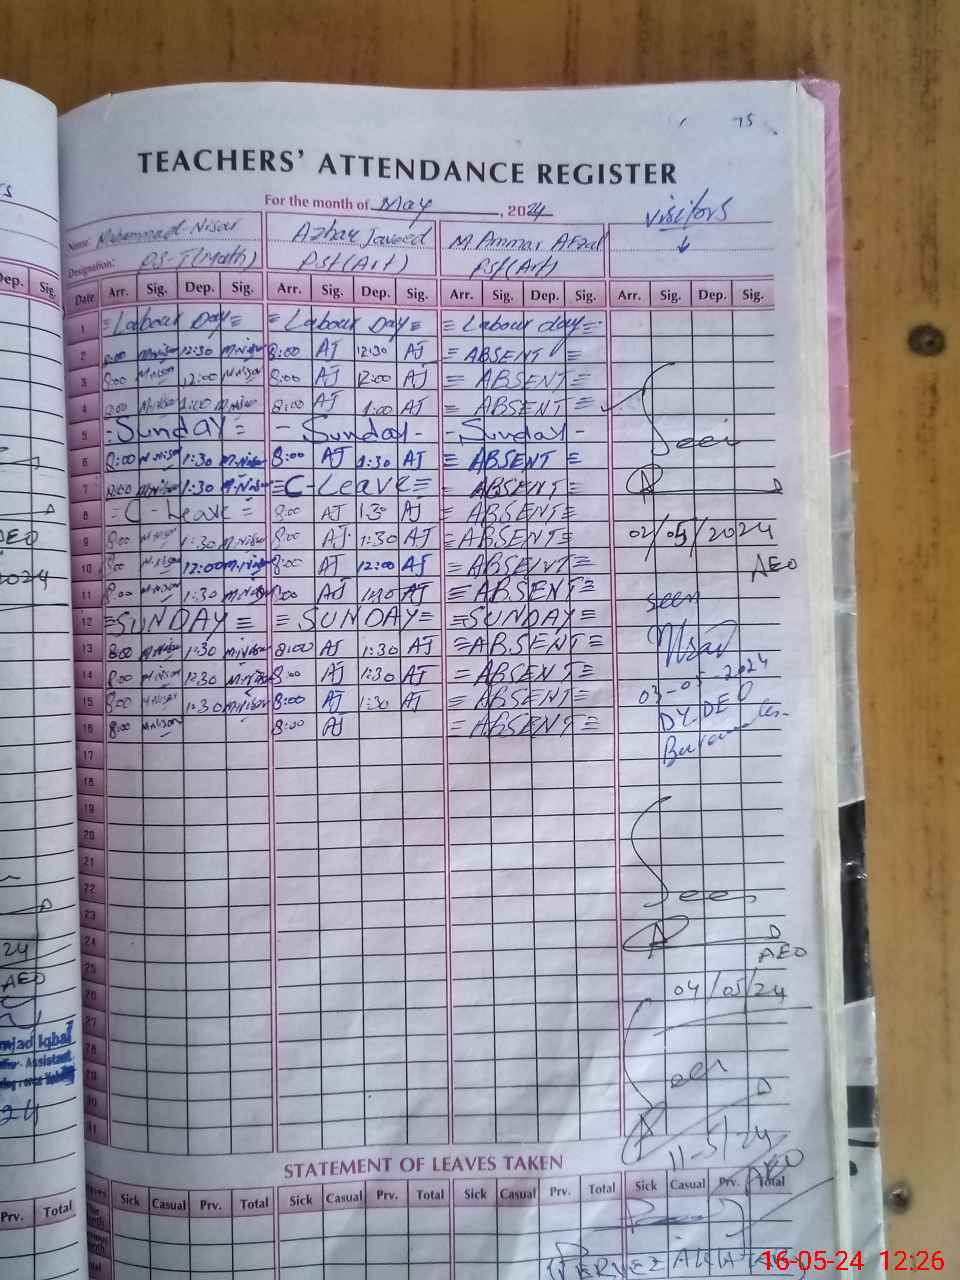 75
TEACHERS' ATTENDANCE REGISTER
For the month of May, 2024
visitors
Name: Muhammad Nisar Azhar Javeed M Ammar Afzal
Designation: PST(Math) PST(Art) PST(Art)
Dep. Sig. Date Arr. Sig. Dep. Sig. Arr. Sig. Dep. Sig. Arr. Sig. Dep. Sig. Arr. Sig. Dep. Sig.
1 =Labour Day= =Labour Day= =Labour day=
2 8:00 M.Nisar 12:30 M.Nisar 8:00 AJ 12:30 AJ = ABSENT =
3 8:00 M.Nisar 12:00 M.Nisar 8:00 AJ 12:00 AJ = ABSENT =
4 8:00 M.Nisar 1:00 M.Nisar 8:00 AJ 1:00 AJ = ABSENT =
5 -Sunday= -Sunday- -Sunday-
Seen
6 8:00 M.Nisar 1:30 M.Nisar 8:00 AJ 1:30 AJ = ABSENT =
7 8:00 M.Nisar 1:30 M.Nisar =C-Leave= = ABSENT =
8 =C-Leave= 8:00 AJ 1:30 AJ = ABSENT =
9 8:00 M.Nisar 1:30 M.Nisar 8:00 AJ 1:30 AJ =ABSENT=
02/05/2024
AEO
10 8:00 M.Nisar 12:00 M.Nisar 8:00 AJ 12:00 AJ =ABSENT=
11 8:00 M.Nisar 1:30 M.Nisar 8:00 AJ AJ =ABSENT=
seen
12 =SUNDAY= =SUNDAY= =SUNDAY=
13 8:00 M.Nisar 1:30 M.Nisar 8:00 AJ 1:30 AJ =ABSENT=
14 8:00 M.Nisar 1:30 M.Nisar 8:00 AJ 1:30 AJ =ABSENT=
03-05-2024
15 8:00 M.Nisar 1:30 M.Nisar 8:00 AJ 1:30 AJ =ABSENT=
DY.DEO
16 8:00 M.Nisar 8:00 AJ =ABSENT=
17
18
19
20
21
22
Seen
23
24
AEO
25
26
04/05/24
27
28
29
Seen
30
31
11-5/24
AEO
STATEMENT OF LEAVES TAKEN
Prv. Total Sick Casual Prv. Total Sick Casual Prv. Total Sick Casual Prv. Total Sick Casual Prv. Total
PERVEZ
AEO
2024
24
AEO
mjad Iqbal
Assistant
24
16-05-24 12:26